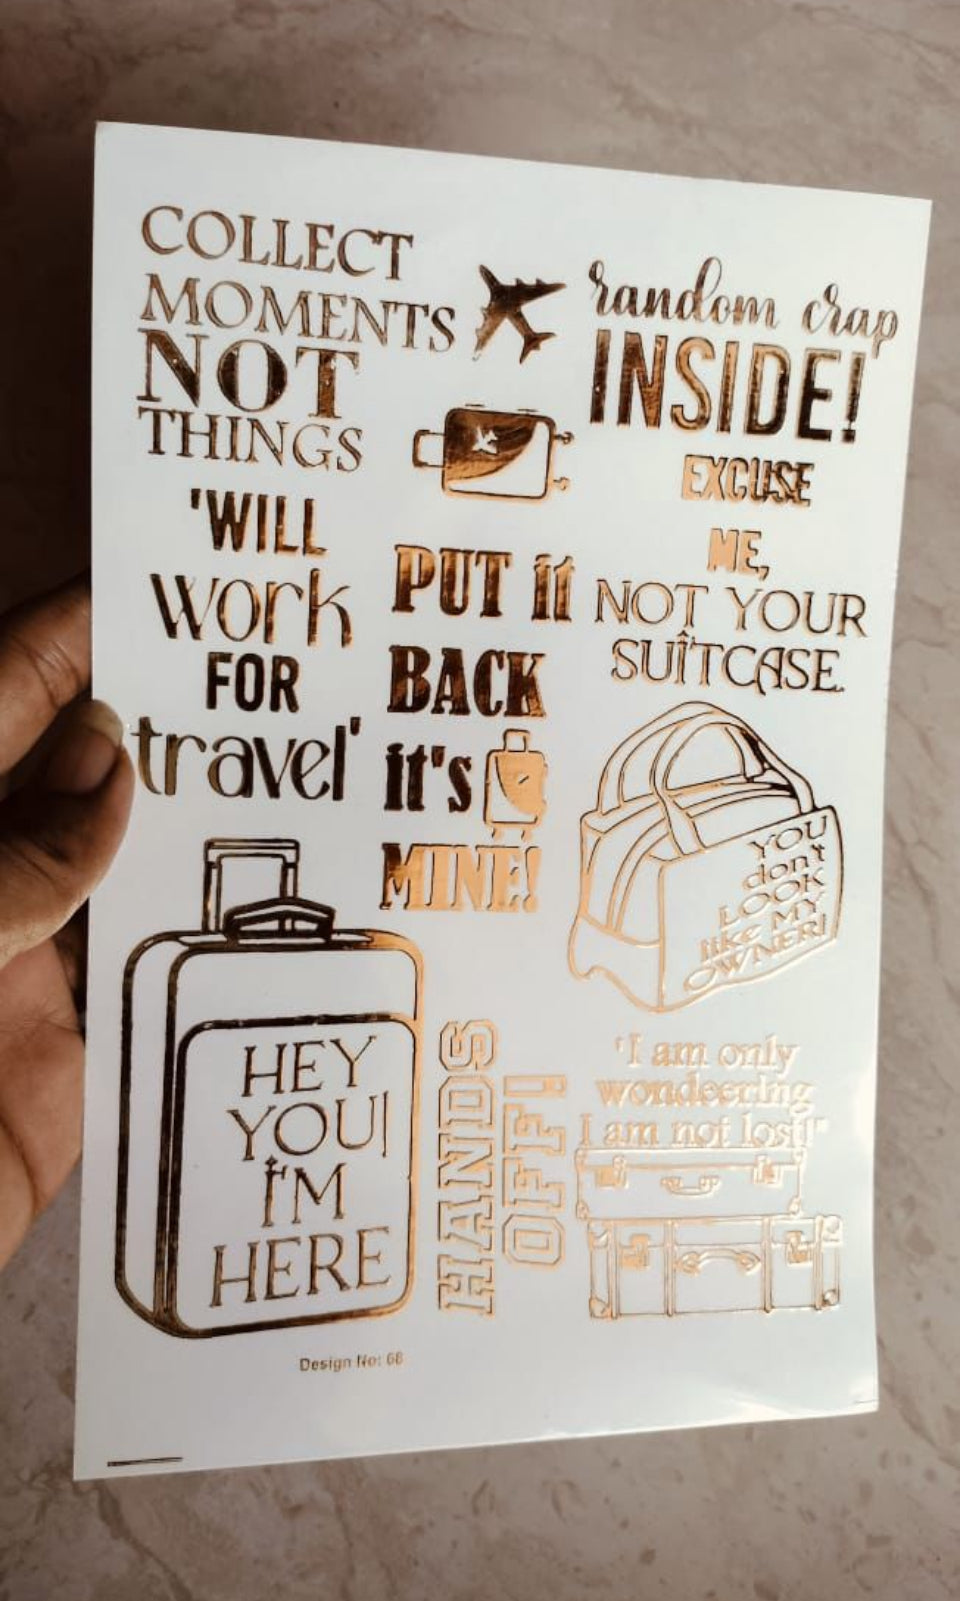 COLLECT
MOMENTS
NOT
THINGS
random crap
INSIDE!
EXCUSE
ME,
NOT YOUR
SUITCASE.
'WILL
work
FOR
travel'
PUT it
BACK
it's
MINE!
YOU
don't
LOOK
like MY
OWNER!
HEY
YOU!
I'M
HERE
HANDS
OFF!
"I am only
wondeering
I am not lost!"
Design No: 68